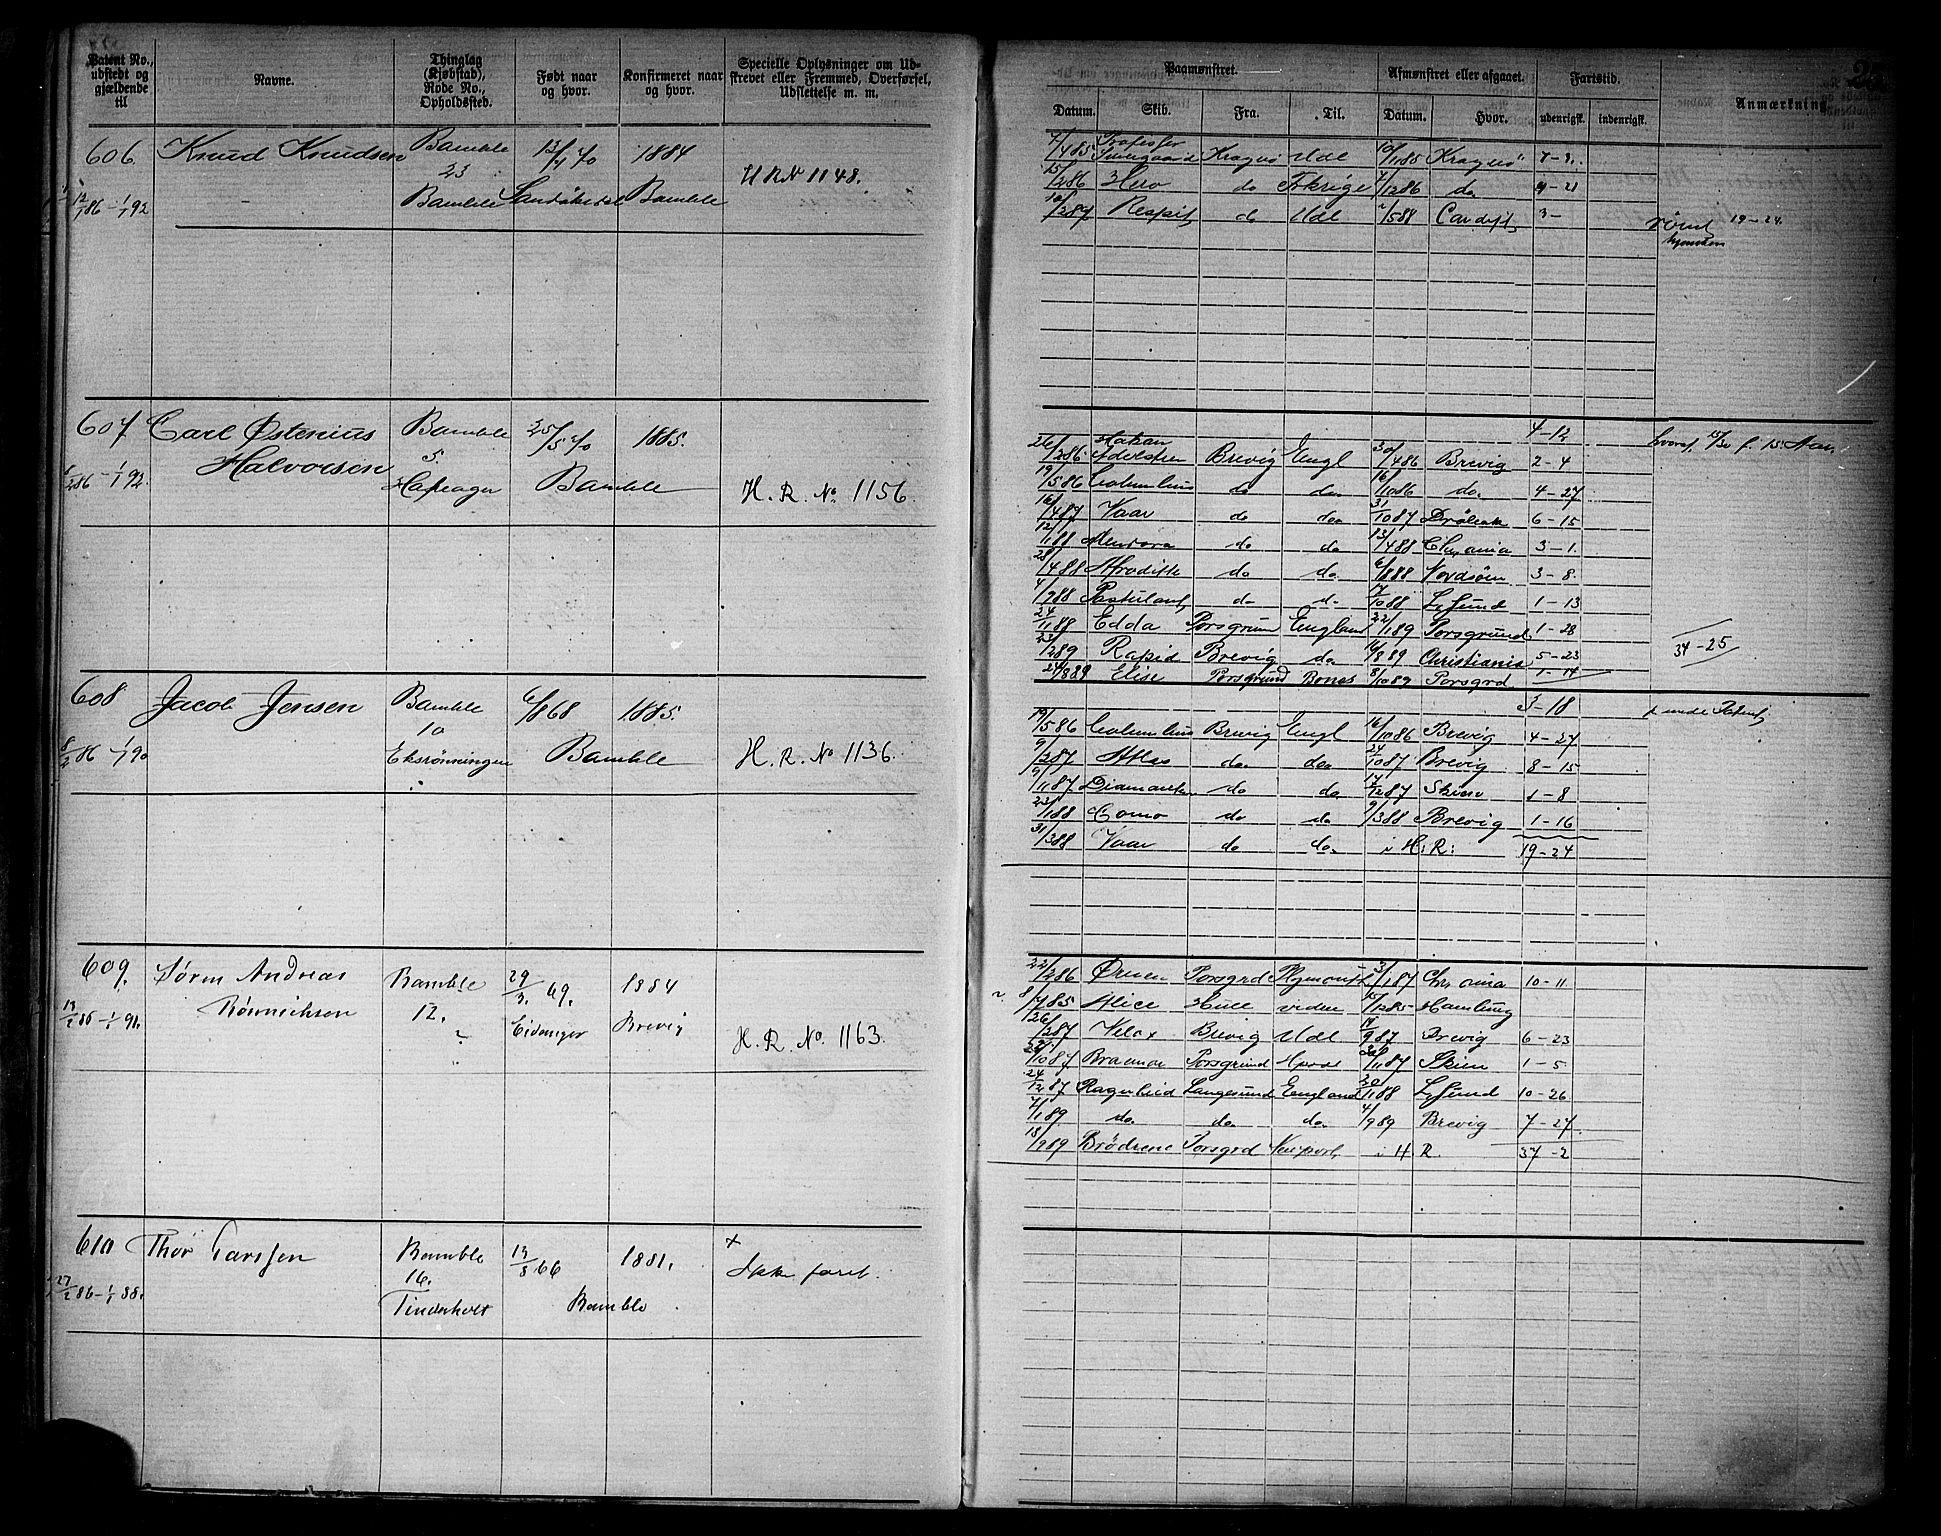 Patent No., udstedt og gjældende til
Navne.
Thinglag (Kjøbstad), Rode No., Opholdssted.
Født naar og hvor.
Konfirmeret naar og hvor.
Specielle Oplysninger om Udskrevet eller Fremmed, Overførsel, Udslettelse m. m.
606. Knud Knudsen Bamble 13/4 70 1884
23 H R N 1148.
12/1 86 - 1/1 92 Bamble Bamble
607 Carl Østenius Bamble 25/5 70 1885.
Halvorsen 5.
86 - 1/1 92. Bamble H. R. No. 1156.
608 Jacob Jensen Bamble 6/8 68 1885.
10
8/2 86 - 1/1 90 Eksrønningen Bamble H. R. No 1136.
609. Sørn Andreas Bamble 29/3. 69. 1884
12.
13/2 86 - 1/1 91. Eidanger Brevig H. R. No. 1163.
610 Thor Larssen Bamble 13/8 66 1881. +
16. Ikke faret.
27/2 86 - 1/1 88. Tinderholt Bamble
Paamønstret.
Afmønstret eller afgaaet.
Fartstid.
Anmærkning.
Datum. Skib. Fra. Til. Datum. Hvor. udenrigsk. indenrigsk.
Professor
7/4 85 Kragerø Udl 10/11 85 Kragerø 7-3.
15/2 86 Hero do Frkrige 7/12 86 do 9-21
10/2 87 Respit do Udl 2/5 88 Cardiff 3- rømt 19-24.
4-12
Hakan
26/2 86 Adelsten Brevig Engl 30/4 86 Brevig 2-4
19/5 86 Columbus do do 16/10 86 do 4-27
16/4 87 Vaar do do 31/10 87 Drøbak 6-15
12/1 88 do do 13/4 88 Chr,ania 3-1.
28/4 88 Afroditte do do 6/8 88 3-8.
4/9 88 do do 17/10 88 L,sund 1-13
24/11 88 Edda Porsgrun England 22/1 89 Porsgrund 1-28
23/2 89 Rapid Brevig do 16/8 89 Christiania 5-23 34-25
24/8 89 Elise Porsgrund Bones 8/10 89 Porsgrd 1-14
3-18
19/5 86 Columbus Brevig Engl 16/10 86 Brevig 4-27
9/2 87 Atlas do do 24/10 87 Brevig 8-15
9/11 87 Diamanten do do 17/12 87 Skien 1-8
23/1 88 Como do do 9/3 88 Brevig 1-16
31/3 88 Vaar do do i H: R: 19-24
22/2 86 Ørnen Porsgrd Plymouth 3/1 87 Chr ania 10-11
8/7 85 Alice Hull viden 15/12 85 Hamburg
26/2 87 Velox Brevig Udl 19/9 87 Brevig 6-23
10 87 Porsgrund 11 87 Skien 1-5
24/12 87 Ragnhild Langesund England 20/11 88 L,sund 10-26
7/1 89 do do do 4/9 89 Brevig 7-27
18/9 89 Brødrene Porsgrd Newport i H R. 37-2